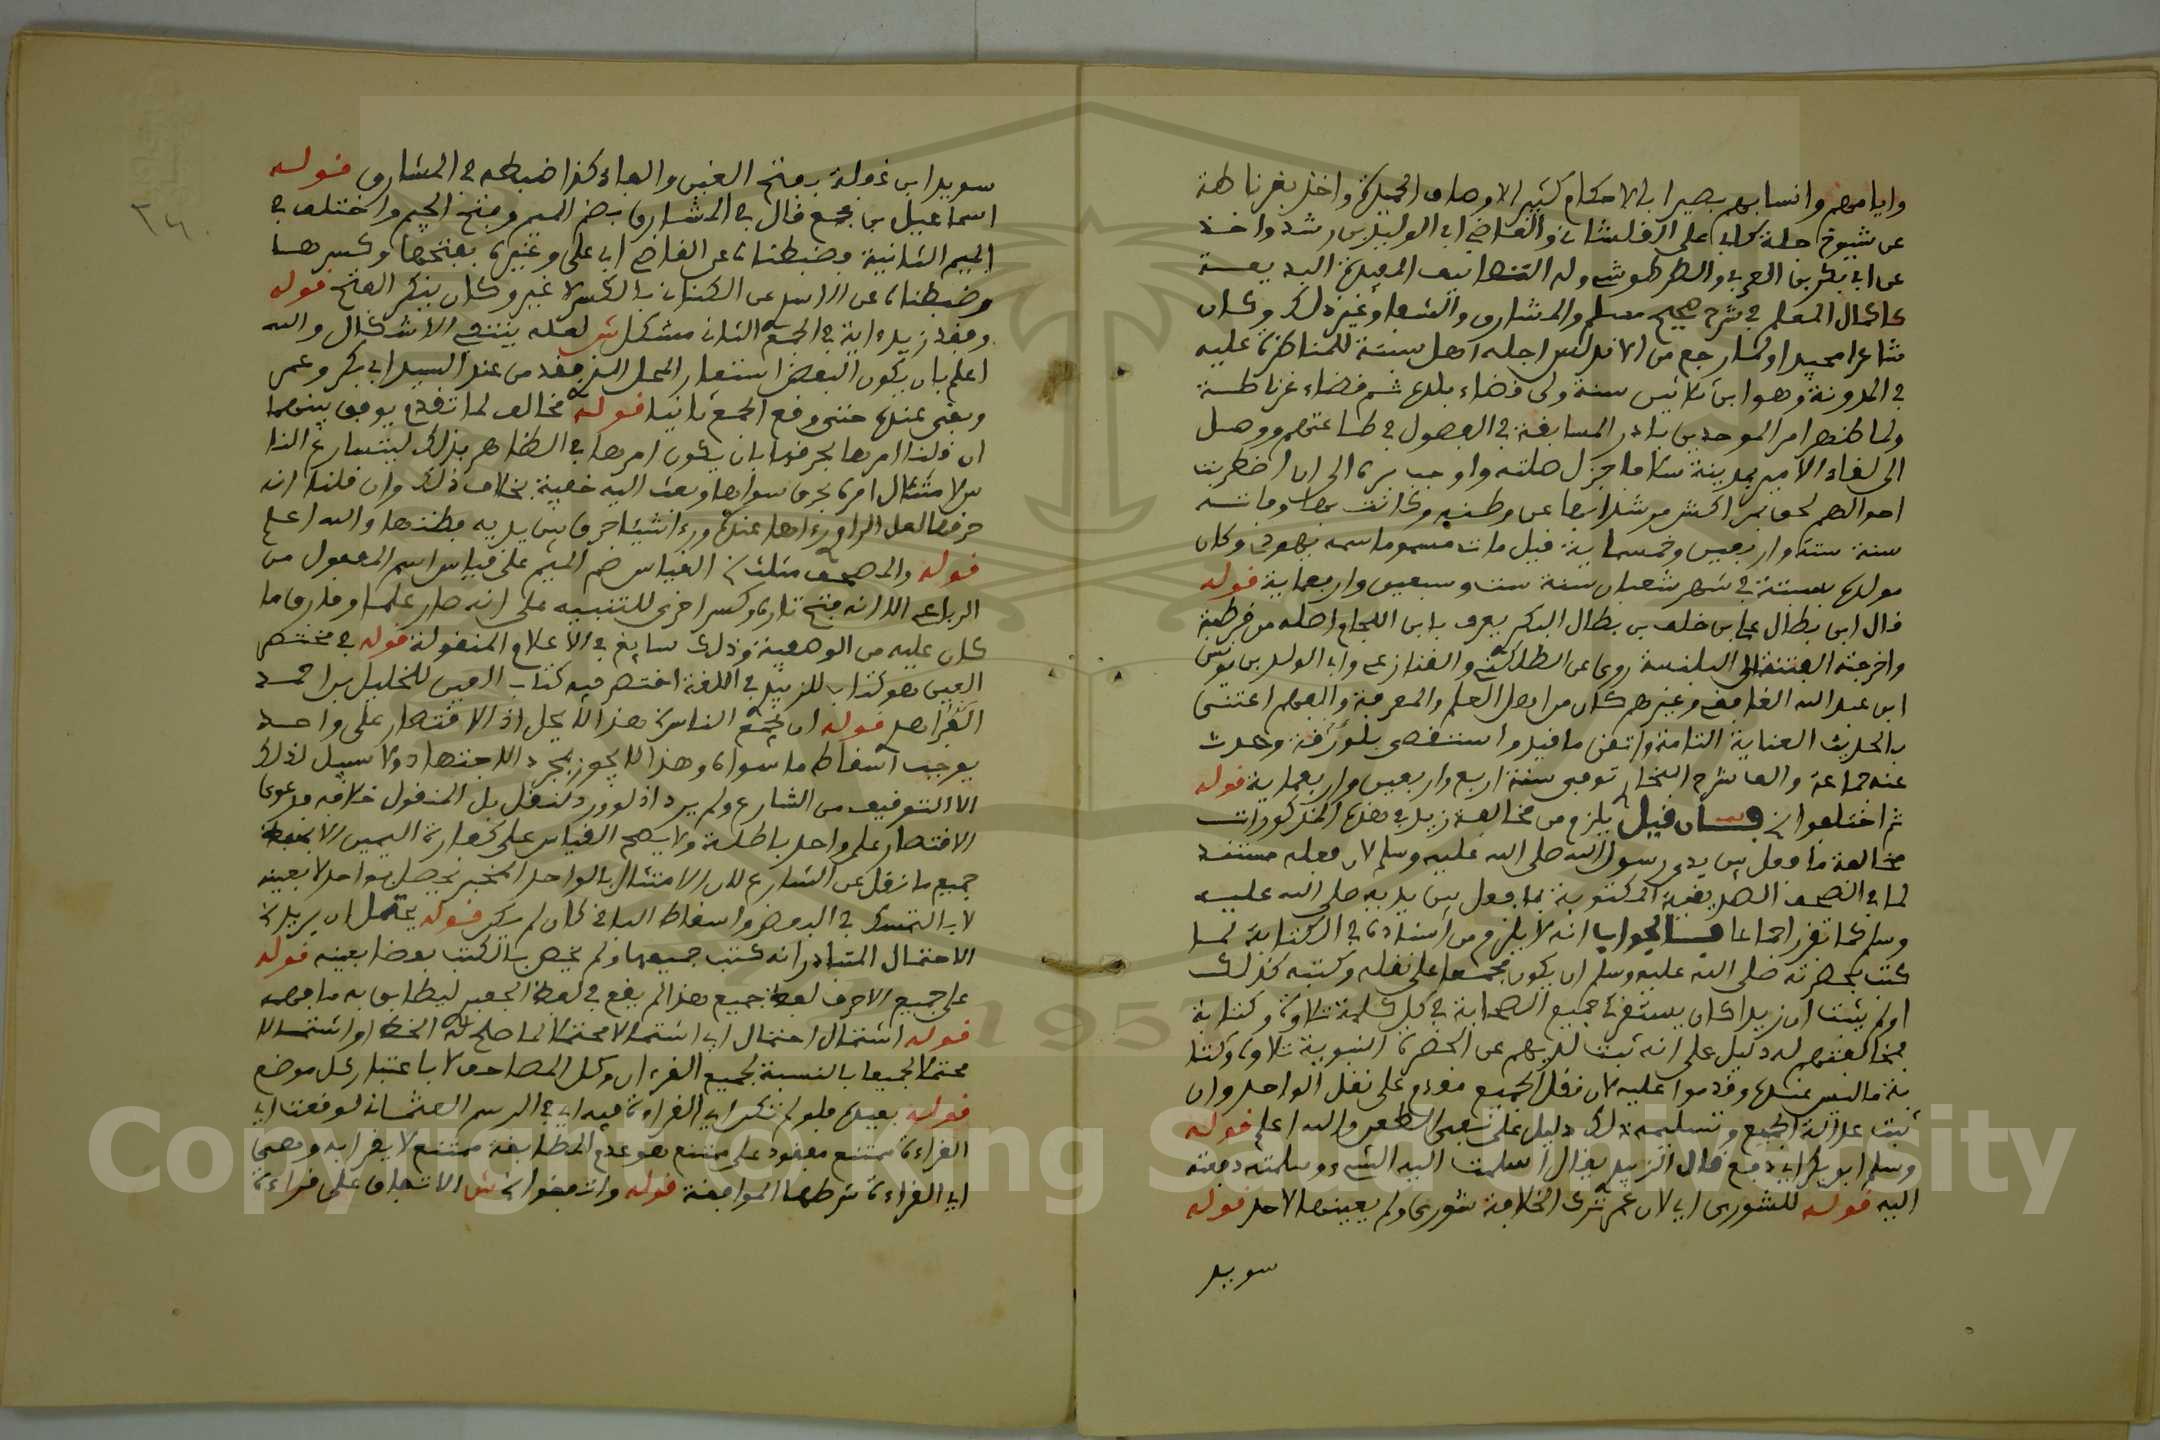 وايامهم وانسابهم بصيرا بالاحكام كثير الاوصاف الحميدة واخذ بغرناطة
عن شيوخ جلة كابي علي الغساني والقاضي ابي الوليد بن رشد واخذ
عن ابي بكر بن العربي والطرطوشي وله التصانيف المفيدة البديعة
كاكمال المعلم في شرح صحيح مسلم والمشارق والشفا وغير ذلك وكان
شاعرا مجيدا ولما رجع من الاندلس اجله اهل سبتة للمناظرة عليه
في المدونة وهو ابن ثلاثين سنة ولي قضاء بلده ثم قضاء غرناطة
ولما ظهر امر الموحدين بادر المسابقة في الدخول في طاعتهم ووصل
الى لقاء الامير بمدينة سلا فاجزل صلته واوجب بره الى ان اضطربت
احوالهم لحق بمراكش مشردا بها عن وطنه وكانت بها وفاته
سنة ستة واربعين وخمسماية قيل مات مسموما سمه يهودي وكان
مولده بسبتة في شهر شعبان سنة ست وسبعين واربعماية قوله
قال ابن بطال علي بن خلف بن بطال البكري يعرف بابن اللجام اصله من قرطبة
واخرجته الفتنة الى بلنسية روى عن الطلمنكي والقنازعي وابي الوليد بن يونس
ابن عبد الله القاضي وغيرهم كان من اهل العلم والمعرفة والفهم اعتنى
بالحديث العناية التامة واتقن ما قيد واستقضي بلورقة وحدث
عنه جماعة والف شرح البخاري توفي سنة اربع واربعين واربعماية قوله
ثم اختلفوا الخ فان قيل يلزم من مخالفة زيد في هذه المذكورات
مخالفة ما فعل بين يدي رسول الله صلى الله عليه وسلم لان فعله مستند
لما في الصحف الصديقية المكتوبة بما فعل بين يديه صلى الله عليه
وسلم كما تقرر اجماعا فالجواب انه لا يلزم من استناده في الكتابة لما
كتب بحضرته صلى الله عليه وسلم ان يكون مجمعا على نقله وكتبه كذلك
اولم يثبت ان زيدا كان يستقري جميع الصحابة في كل كلمة تلاوة وكتابة
فمخالفتهم له دليل على انه ثبت لديهم عن الحضرة النبوية تلاوة وكتا
بة ما ليس عنده وقدموا عليه لان نقل الجميع مقدم على نقل الواحد وان
ثبت عدالة الجميع وتسليمه ذلك دليل على نفي الطعن والله اعلم قوله
وسلم ابو بكر اي دفع قال الزبيدي يقال اسلمت اليه الشيء وسلمته دفعته
اليه قوله للشورى اي لان عمر ترك الخلافة شورى ولم يعينها لاحد قوله
سويد
سويد ابن غفلة بفتح الغين والفاء كذا ضبطه في المشارق قوله
اسماعيل بن مجمع قال في المشارق بضم الميم وفتح الجيم واختلف في
الميم الثانية وضبطناه عن القاضي ابي علي وغيره بفتحها وكسرها
وضبطناه عن الاسدي عن الكتاني بالكسر لا غير وكان ينكر الفتح قوله
وفقد زيد ءاية في الجمع الثاني مشكل ش لعله ينتفي الاشكال والله
اعلم بان يكون البعض استعار المحل الذي فقد من عند السيد ابي بكر وعمر
وبقي عنده حتى وقع الجمع ثانيا قوله مخالف لما تقدم يوفق بينهما
ان قلنا امر بحرقها بان يكون امرها في الظاهر بذلك ليتسارع النا
س لامتثال امره بحرق سواها وبعث اليه خفية بخلاف ذلك وان قلنا انه
حرقها لعل الراوي رءاها عنده ورءا شيئا حرق بين يديه فظنها والله اعلم
قوله والمصحف مثلث الخ القياس ضم الميم على قياس اسم المفعول من
الرباعي الا انه فتح تارة وكسر اخرى للتنبيه على انه صار علما وفارق ما
كان عليه من الوصفية وذلك سايغ في الاعلام المنقولة قوله في مختصر
العين هو كتاب للزبيدي في اللغة اختصر فيه كتاب العين للخليل بن احمد
الفراهيدي قوله ان يجمع الناس الخ هذا لا يحل اذ الاقتصار على واحد
يوجب اسقاط ما سواه وهذا لا يجوز بمجرد الاجتهاد ولا سبيل لذلك
الا التوقيف من الشارع ولم يرد اذ لو ورد لنقل بل المنقول خلافه فدعوى
الاقتصار على واحد باطلة ولا يصح القياس على كفارة اليمين لانه
جميع ما نقل عن الشارع لان الامتثال بالواحد المخير يحصل بواحد لا بعينه
لا بالتمسك في البعض واسقاط الباقي كان لم يكن قوله يحتمل ان يريد الخ
الاحتمال المتبادر انه كتب جميعها ولم يخص بالكتب بعضا بعينه قوله
على جميع الاحرف لفظ جميع هذا لم يقع في لفظ الجعبري ليطابق به ما فهمه
قوله اشتمال احتمال اي اشتمالا محتملا لما صلح له الخط او اشتمالا
محتملا لجميعها بالنسبة لجميع القرءان وكل المصاحف لا باعتبار كل موضع
قوله بعيده فلو لم تكن اي القراءة فيه اي في الرسم العثماني لوقعت اي
القراءة ممتنع مفقود على ممتنع هو عدم المطابقة ممتنع لا يقرا به وهي
اي القراءة شرطها الموافقة قوله واتفقوا الخ ش الاتفاق على قراءة